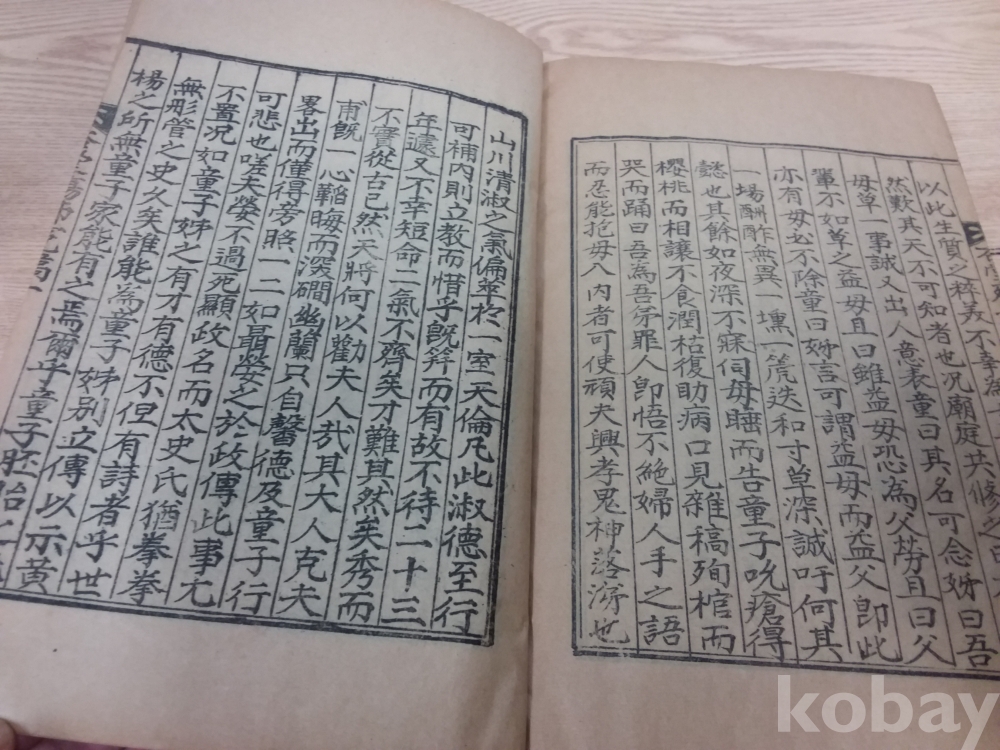 以此生質之粹美不幸為
然歎其天不可知者也況廟庭共脩之
母草一事誠又出人意表童曰其名可念姊曰吾
輩不如草之益母且曰雖益母恐為父勞且曰父
亦有母必不除童曰姊言可謂益母而益父即此
一場酬酢無異一壎一箎迭和寸草深誠吁何其
懿也其餘如夜深不寐伺母睡而告童子吮瘡得
櫻桃而相讓不食潤枯復助病口見雜稿殉棺而
哭而踊曰吾為吾傍罪人即悟不絶婦人手之語
而忍能抱毋入內者可使頑夫興孝鬼神落滂也
山川清淑之氣偏萃於一室天倫凡此淑德至行
可補內則立教而惜乎既笄而有故不待二十三
年遽又不幸短命二氣不齊矣才難其然矣秀而
不實從古已然天將何以勸夫人哉其大人克夫
甫既一心韜晦而深磵幽蘭只自馨德及童子行
畧出而僅得旁照一二如聶嫈之於政傳此事尤
可悲也嗟夫嫈不過死顯政名而太史氏猶拳拳
不置況如童子姊之有才有德不但有詩者乎世
無彤管之史久矣誰能為童子姊別立傳以示黃
楊之所無童子家能有之焉爾乎童子胚胎
kobay